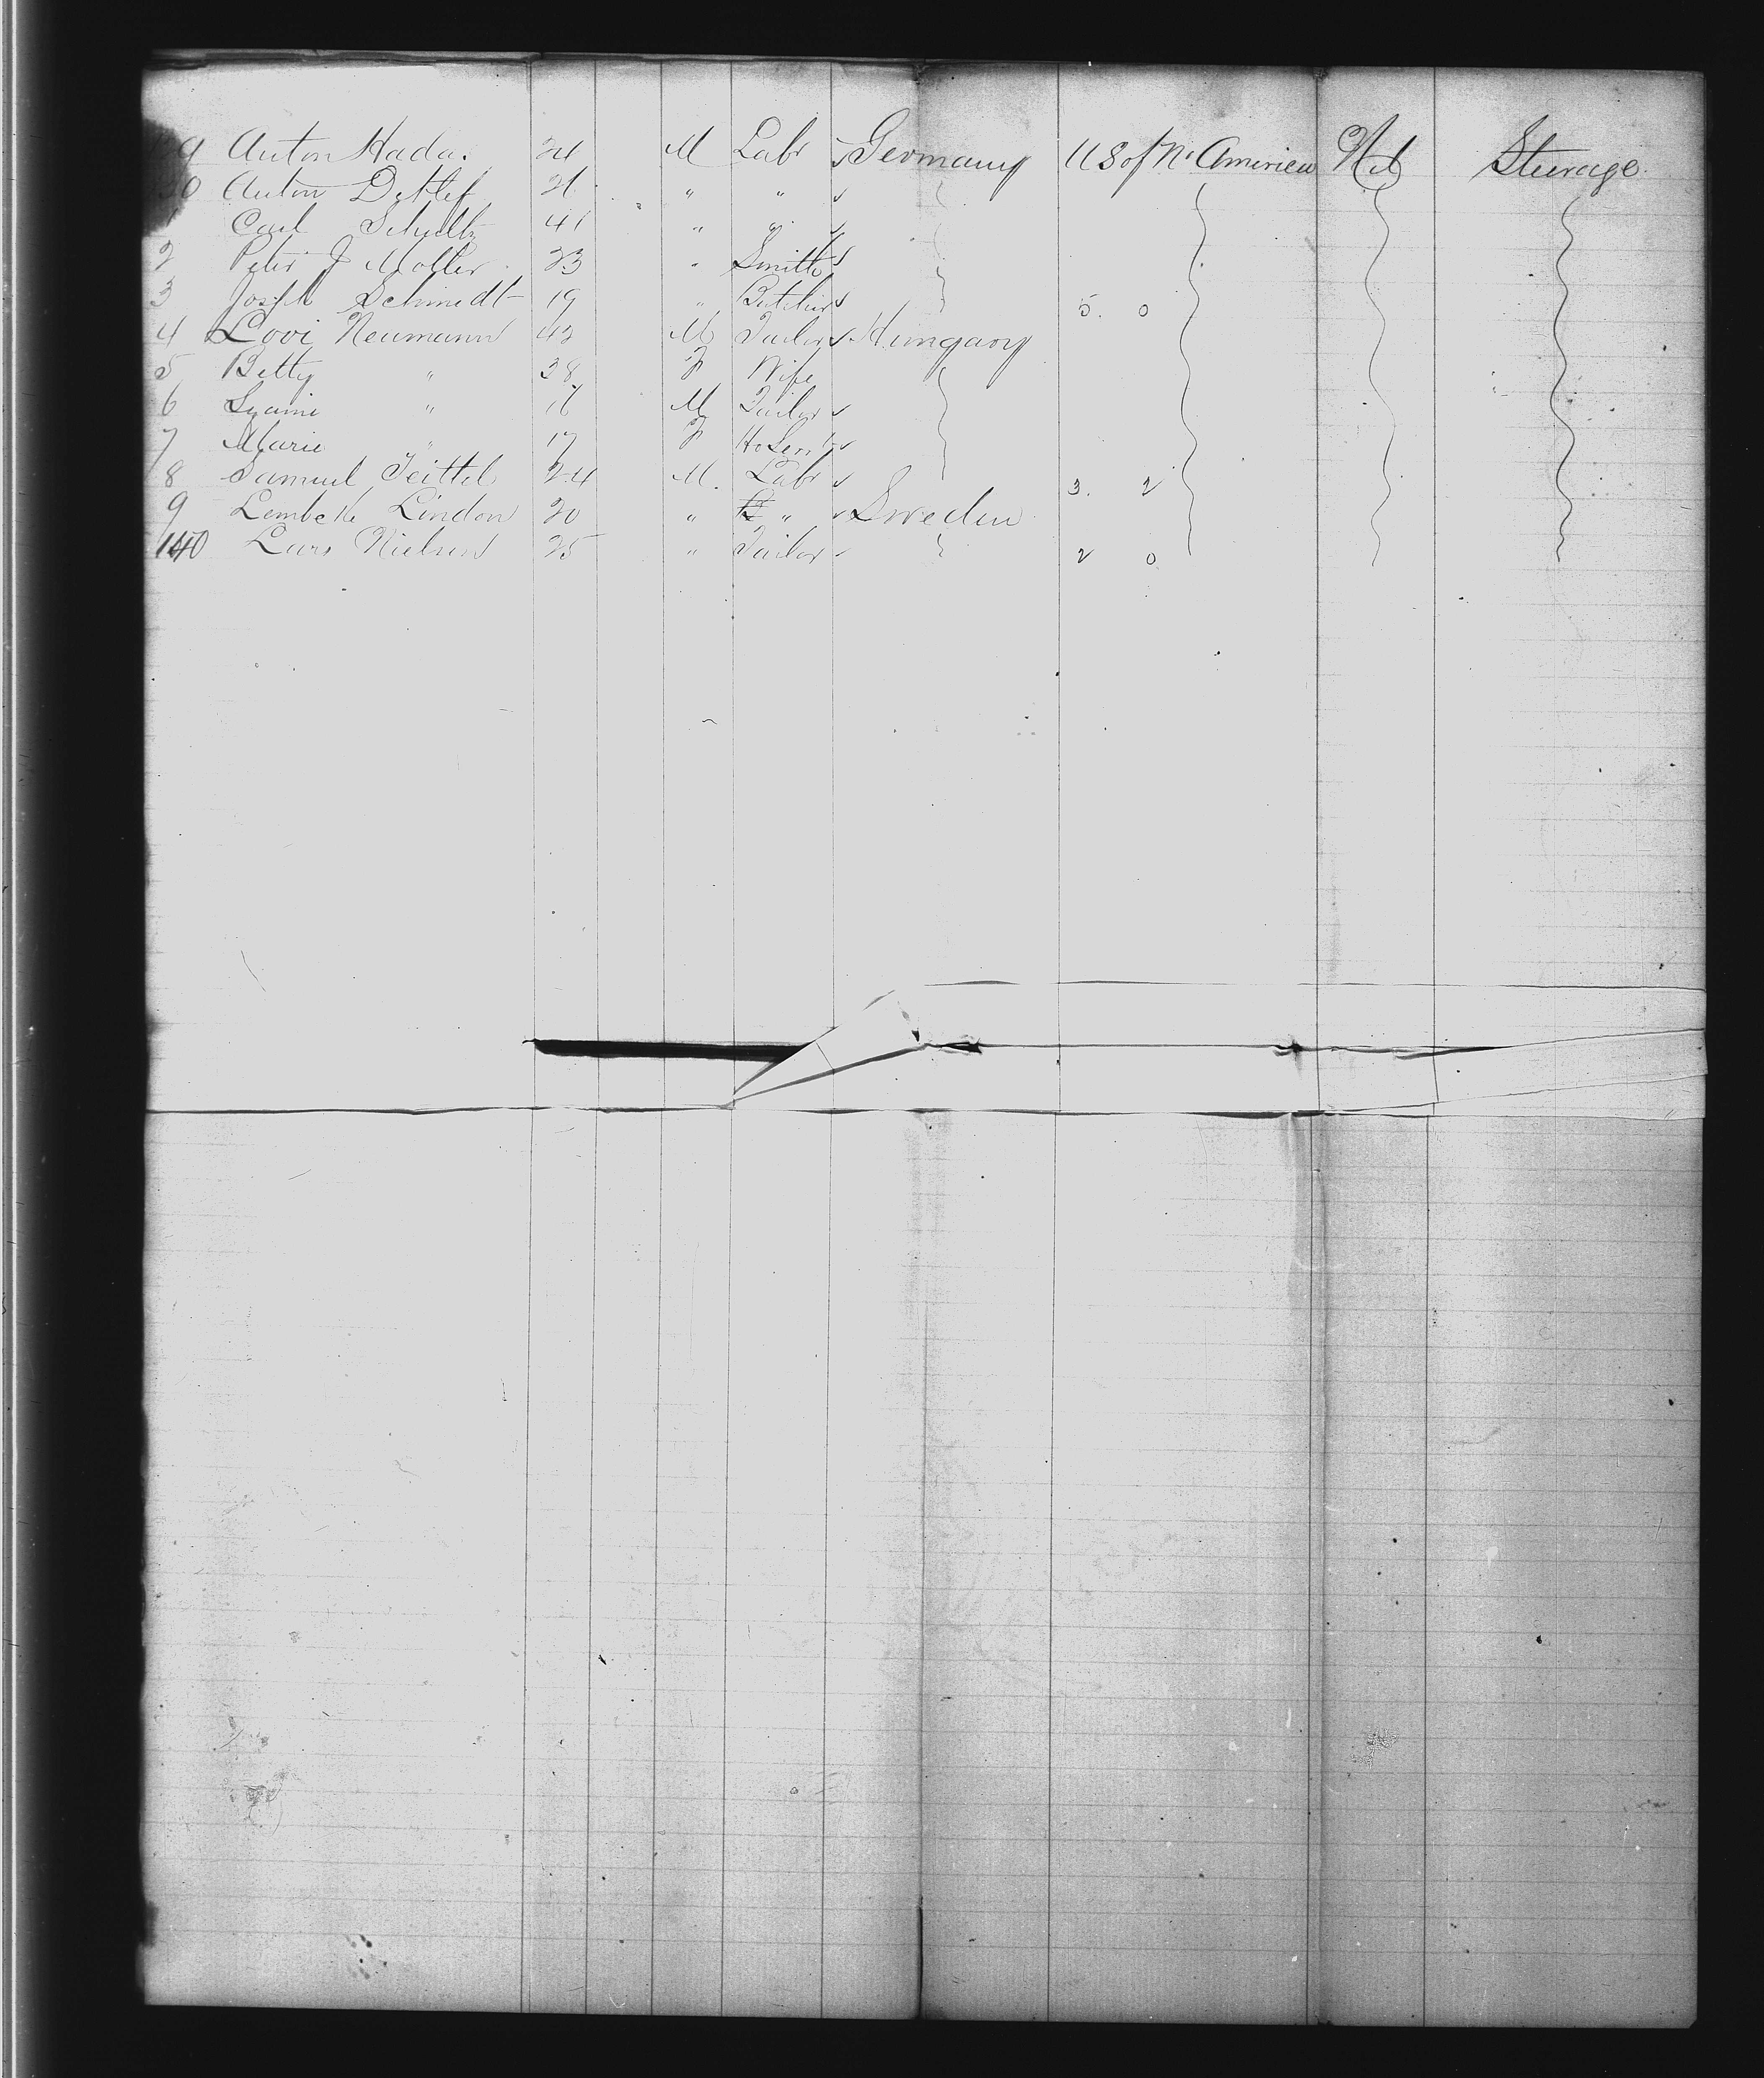 9 Anton Hada. 24 M Labr Germany U S of N. America Nil Steerage.
30 Anton Detlef 26 " " "
1 Carl Schultz 41 " "
2 Peter J Moller 23 " Smith
3 Joseph Schmidt 19 " Butcher 5. 0
4 Lovi Neumann 43 M Tailor Hungary
5 Betty " 38 F Wife
6 " M Tailor
7 Marie " 17 F
8 Samuel Teittel 24 M. Labr 3. 2
9 Lembeck Lindon 20 " " Sweden
140 Lars Nielsen 25 " Tailor 2 0